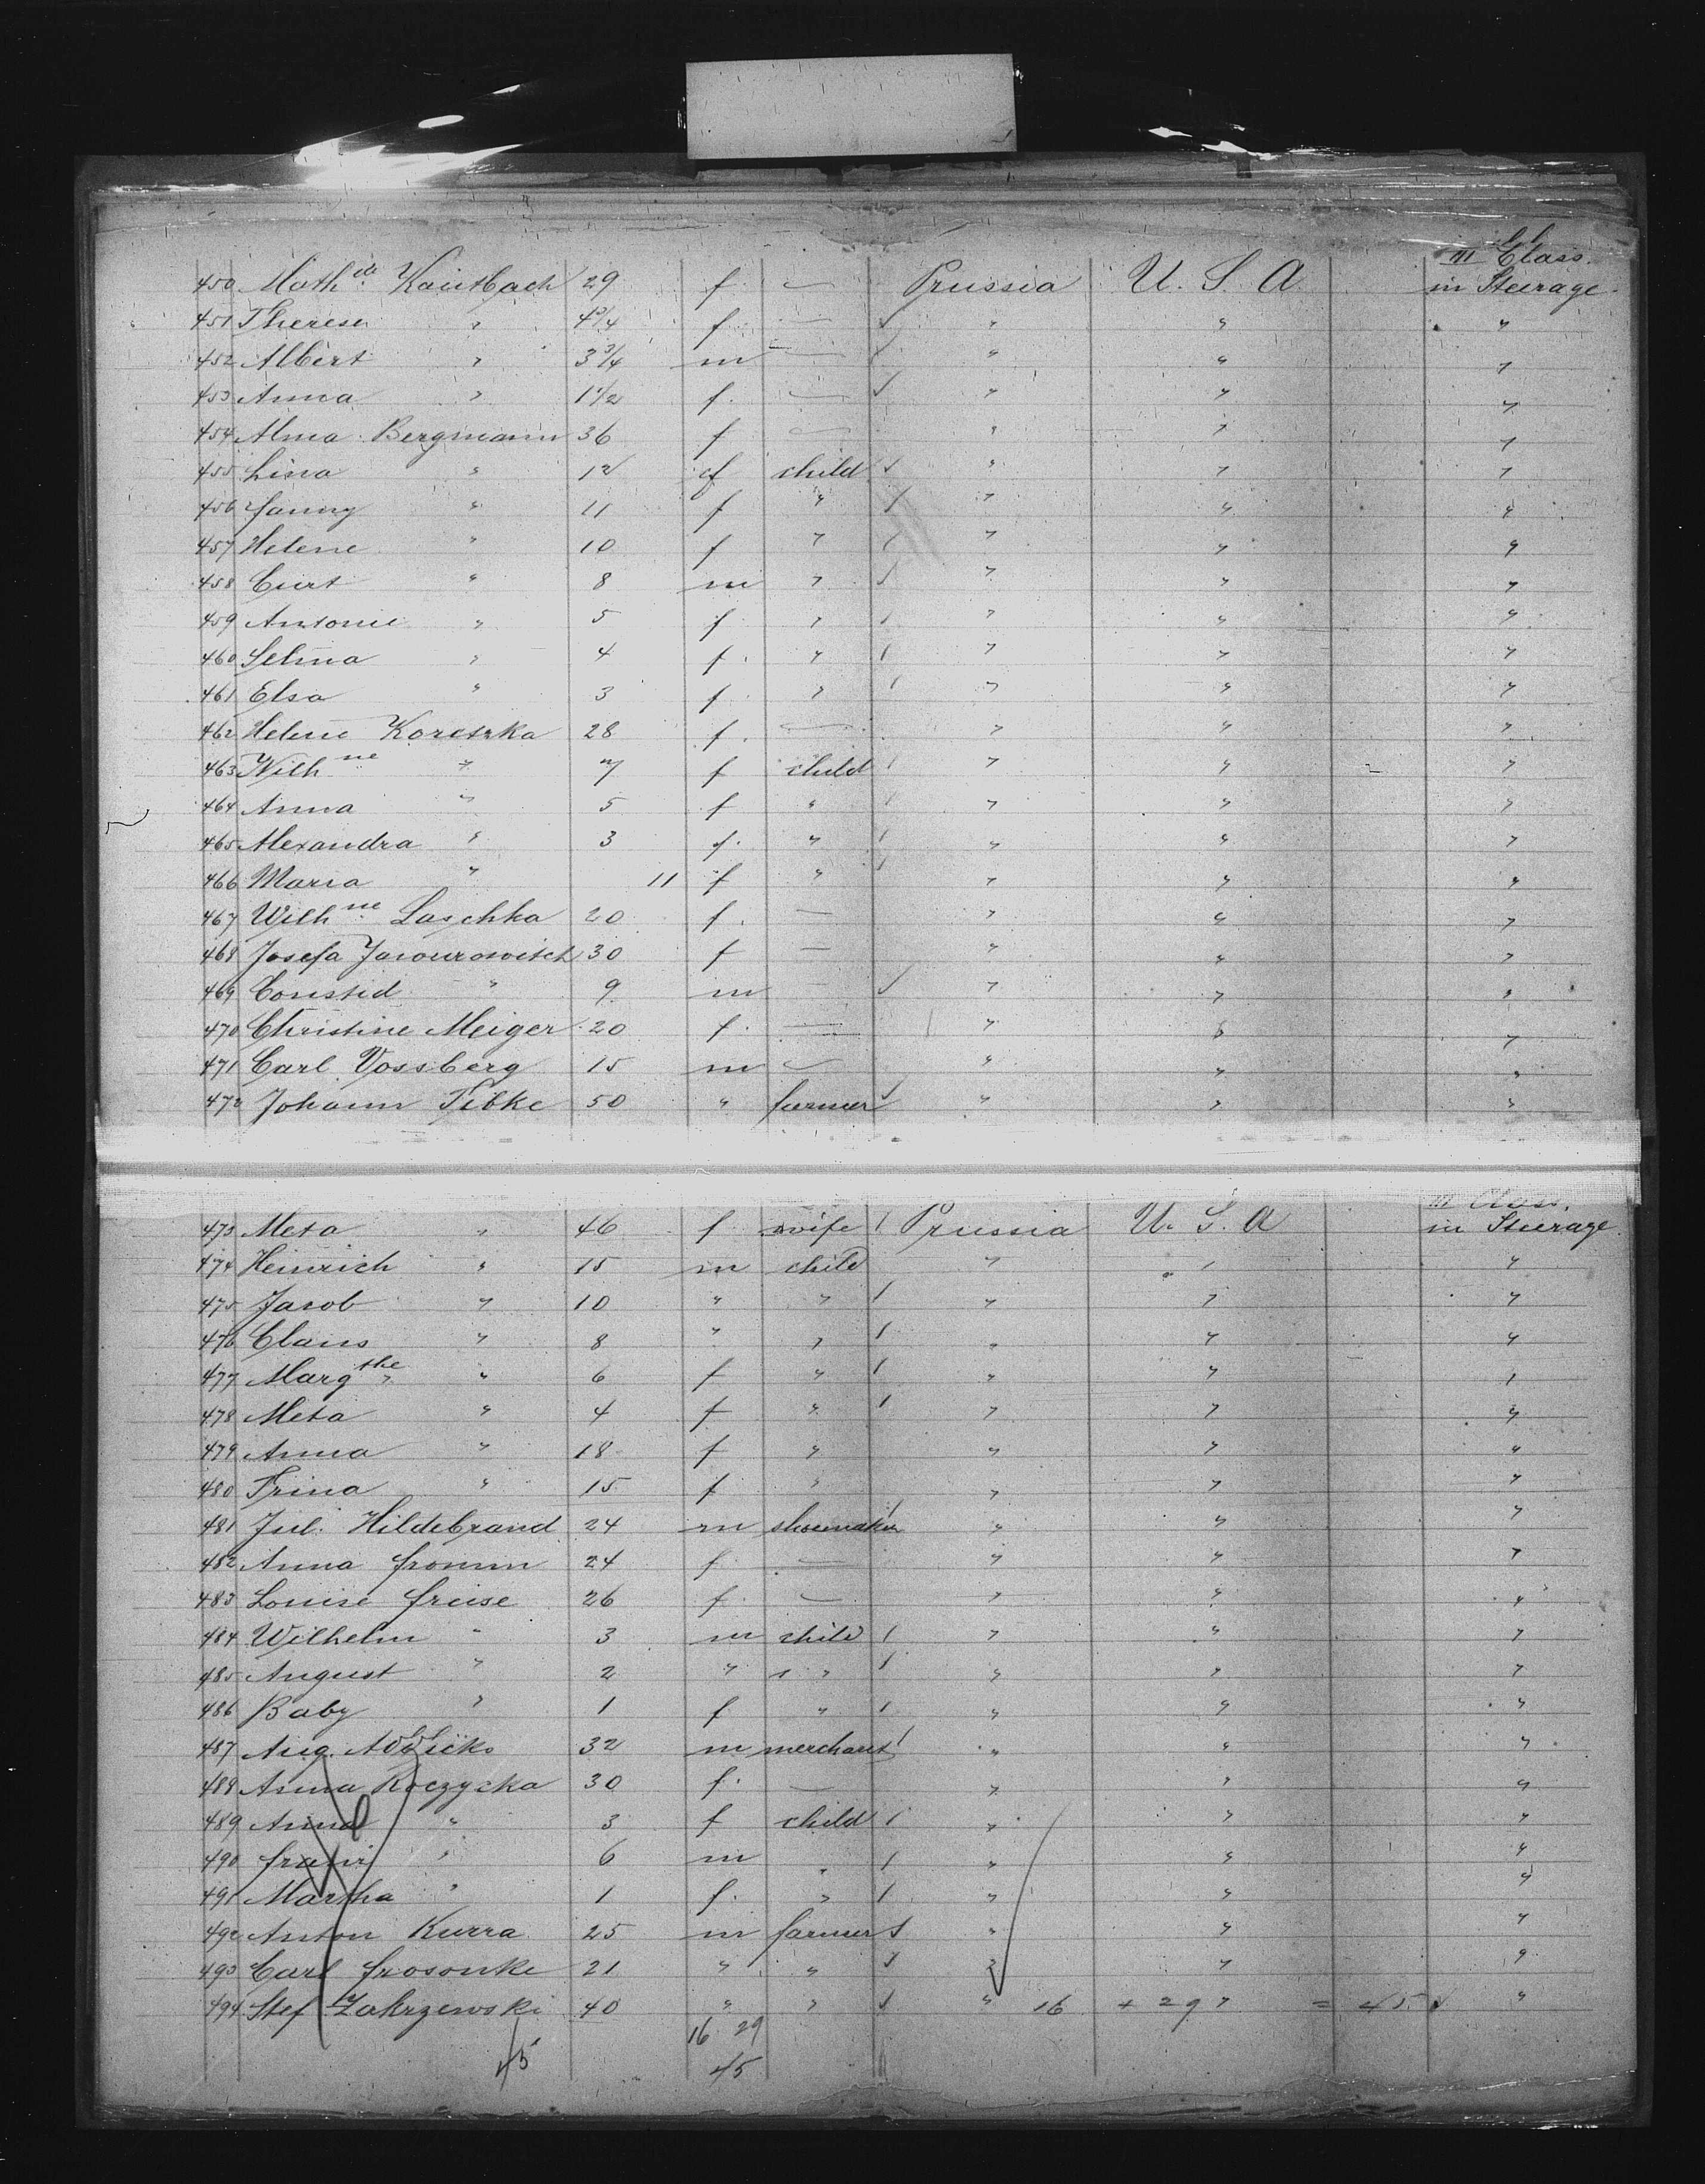 III Class.
450 Math de Kautbach 29 f — Prussia U. S. A in Steerage.
451 Therese " 4 3/4 f — " " "
452 Albert " 3 3/4 m — " " "
453 Anna " 1 1/2 f. — " " "
454 Alma Bergmann 36 f — " " "
455 Lina " 12 f child " " "
456 Fanny " 11 f " " " "
457 Helene " 10 f " " " "
458 Curt " 8 m " " " "
459 Antonie " 5 f " " " "
460 Selma " 4 f. " " " "
461 Elsa " 3 f. " " " "
462 Helene Koretzka 28 f. — " " "
463 Wilh ne " 7 f child " " "
464 Anna " 5 f " " " "
465 Alexandra " 3 f. " " " "
466 Maria " 11 f " " " "
467 Wilh ne Laschka 20 f. — " " "
468 Josefa 30 f — " " "
469 " 9 m — " " "
470 Christine Meiger 20 f. — " " "
471 Carl Vossberg 15 m — " " "
472 Johann Tibke 50 " farmer " " "
III Class.
473 Meta " 46 f wife Prussia U. S. A in Steerage
474 Heinrich " 15 m child " " "
475 Jacob " 10 " " " " "
476 Claus " 8 " " " " "
477 Marg the " 6 f " " " "
478 Meta " 4 f " " " "
479 Anna " 18 f " " " "
480 Trina " 15 f " " " "
481 Jul. Hildebrand 24 m shoemaker " " "
482 Anna Fromm 24 f — " " "
483 Louise Freise 26 f. — " " "
484 Wilhelm " 3 m child " " "
485 August " 2 " " " " "
486 Baby " 1 f " " " "
487 Aug. 32 m merchant " " "
488 Anna Koczycka 30 f. — " " "
489 Anna " 3 f child " " "
490 " 6 m " " " "
491 Martha " 1 f. " " " "
492 Anton Kurra 25 m farmer " " "
493 Carl Frosonke 21 " " " " "
494 Stef Zakrzewski 40 " " " 16 + 29 " = 45 "
16 29
45 45